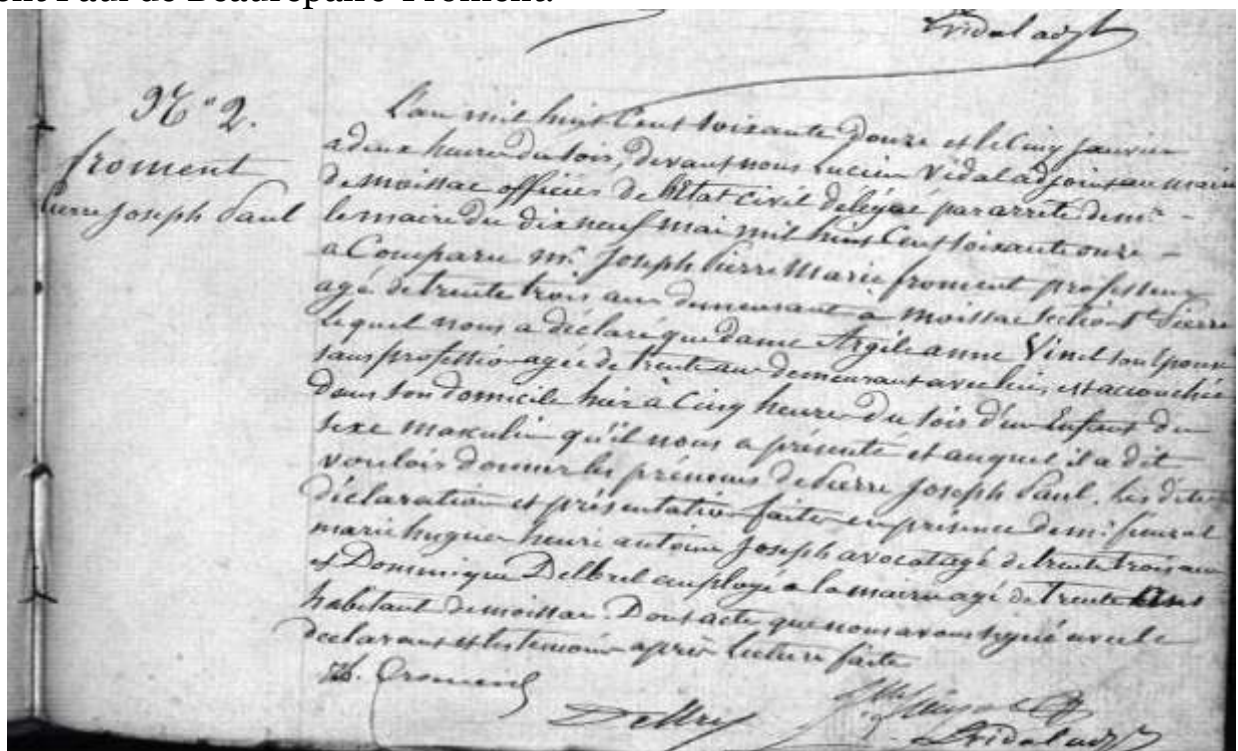 ent Paul de Beaurepaire-Froment.
Vidal adjt
N° 2.
froment
Pierre Joseph Paul
L'an mil huit Cent soixante Douze et le Cinq Janvier
a deux heures Du soir, Devant nous Lucien Vidal adjoint au maire
De moissac officier De l'Etat civil délégué par arrêté de mr
le maire du dix neuf mai mil huit Cent soixante onze –
a Comparu mr. Joseph Pierre Marie froment professeur
agé de trente trois ans demeurant a moissac section St Pierre
Lequel nous a déclaré que dame Argile anne Vinel son Epouse
sans profession agée de trente ans demeurant avec lui, est accouchée
Dans son domicile hier à Cinq heures Du soir d'un Enfant du
sexe masculin qu'il nous a présenté et auquel il a dit
vouloir donner les prénoms de Pierre Joseph Paul. les dites
Déclaration et présentation faites en présence de mr.
marie hugues henri antoine Joseph avocat agé de trente trois ans
et Dominique Delbrel employé a la mairie agé de trente ans
habitant De moissac. Dont acte que nous avons signé avec le
declarant et les temoins après lecture faite
Froment
Delbrel
Vidal adjt